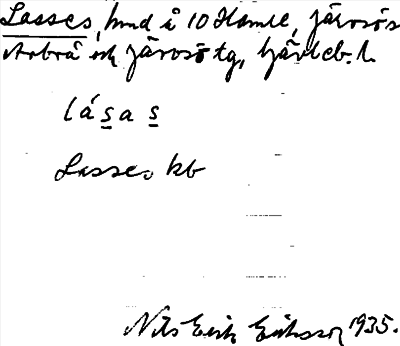 Lasses, hmd å 10 Hamre, Järvsö s
Arbrå och Järvsö tg, Gävleb. l.
lásas
Lasses, kb
Nils Erik Eriksson 1935.